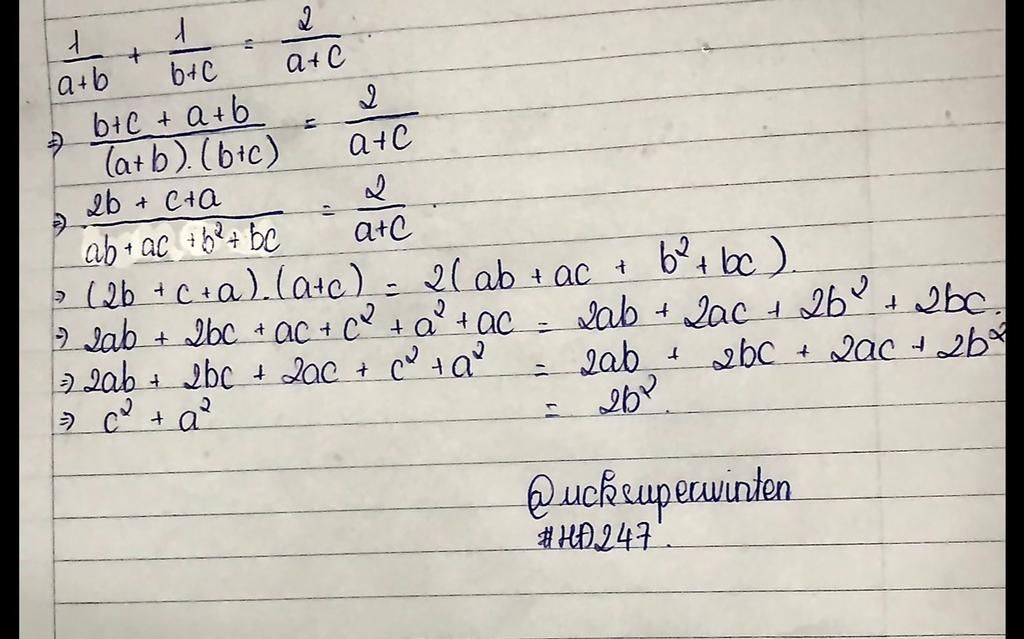 1/(a+b) + 1/(b+c) = 2/(a+c).
⇒ (b+c + a+b)/((a+b).(b+c)) = 2/(a+c)
⇒ (2b + c+a)/(ab+ac+b²+bc) = 2/(a+c).
⇒ (2b + c+a).(a+c) = 2(ab + ac + b² + bc).
⇒ 2ab + 2bc + ac + c² + a² + ac = 2ab + 2ac + 2b² + 2bc.
⇒ 2ab + 2bc + 2ac + c² + a² = 2ab + 2bc + 2ac + 2b²
⇒ c² + a² = 2b².
@ucksuperwinten
#HĐ247.